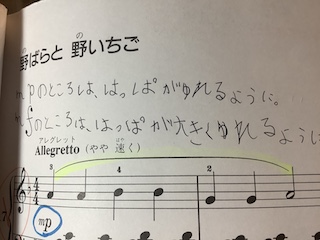 野ばらと 野いちご
mpのところは、はっぱがゆれるように。
fのところは、はっぱが大きくゆれるように
アレグレット
Allegretto (やや 速く)
3 4 2
4
4
mp